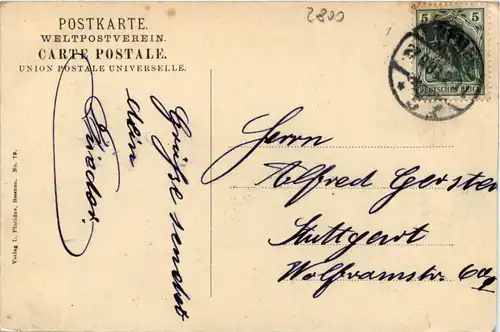 POSTKARTE.
WELTPOSTVEREIN.
CARTE POSTALE.
UNION POSTALE UNIVERSELLE.
2800
5 5
DEUTSCHES REICH
Grüße sendet
dein
Frieder.
Herrn
Alfred Gerster
Stuttgart
Wolframstr.
Verlag L. Placidus, Bremen. No. 79.